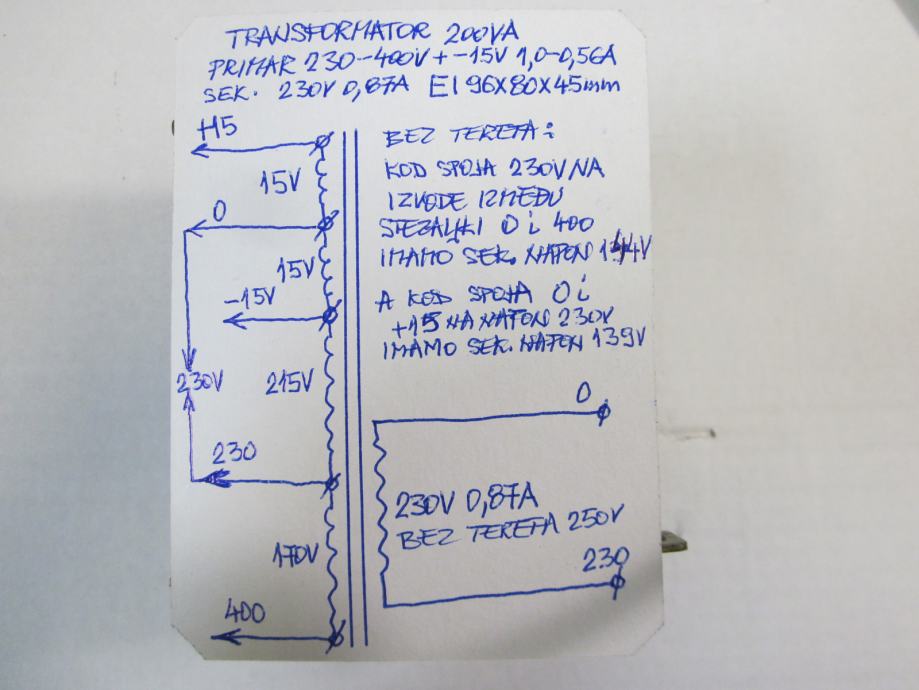 TRANSFORMATOR 200VA
PRIMAR 230-400V +-15V 1,0-0,56A
SEK. 230V 0,87A EI 96X80X45mm
+15
15V
0
15V
-15V
230V
215V
230
170V
400
BEZ TERETA:
KOD SPOJA 230V NA
IZVODE IZMEĐU
STEZALJKI 0 i 400
IMAMO SEK. NAPON 144V
A KOD SPOJA 0 i
+15 NA NAPON 230V
IMAMO SEK. NAPON 139V
0
230V 0,87A
BEZ TERETA 250V
230